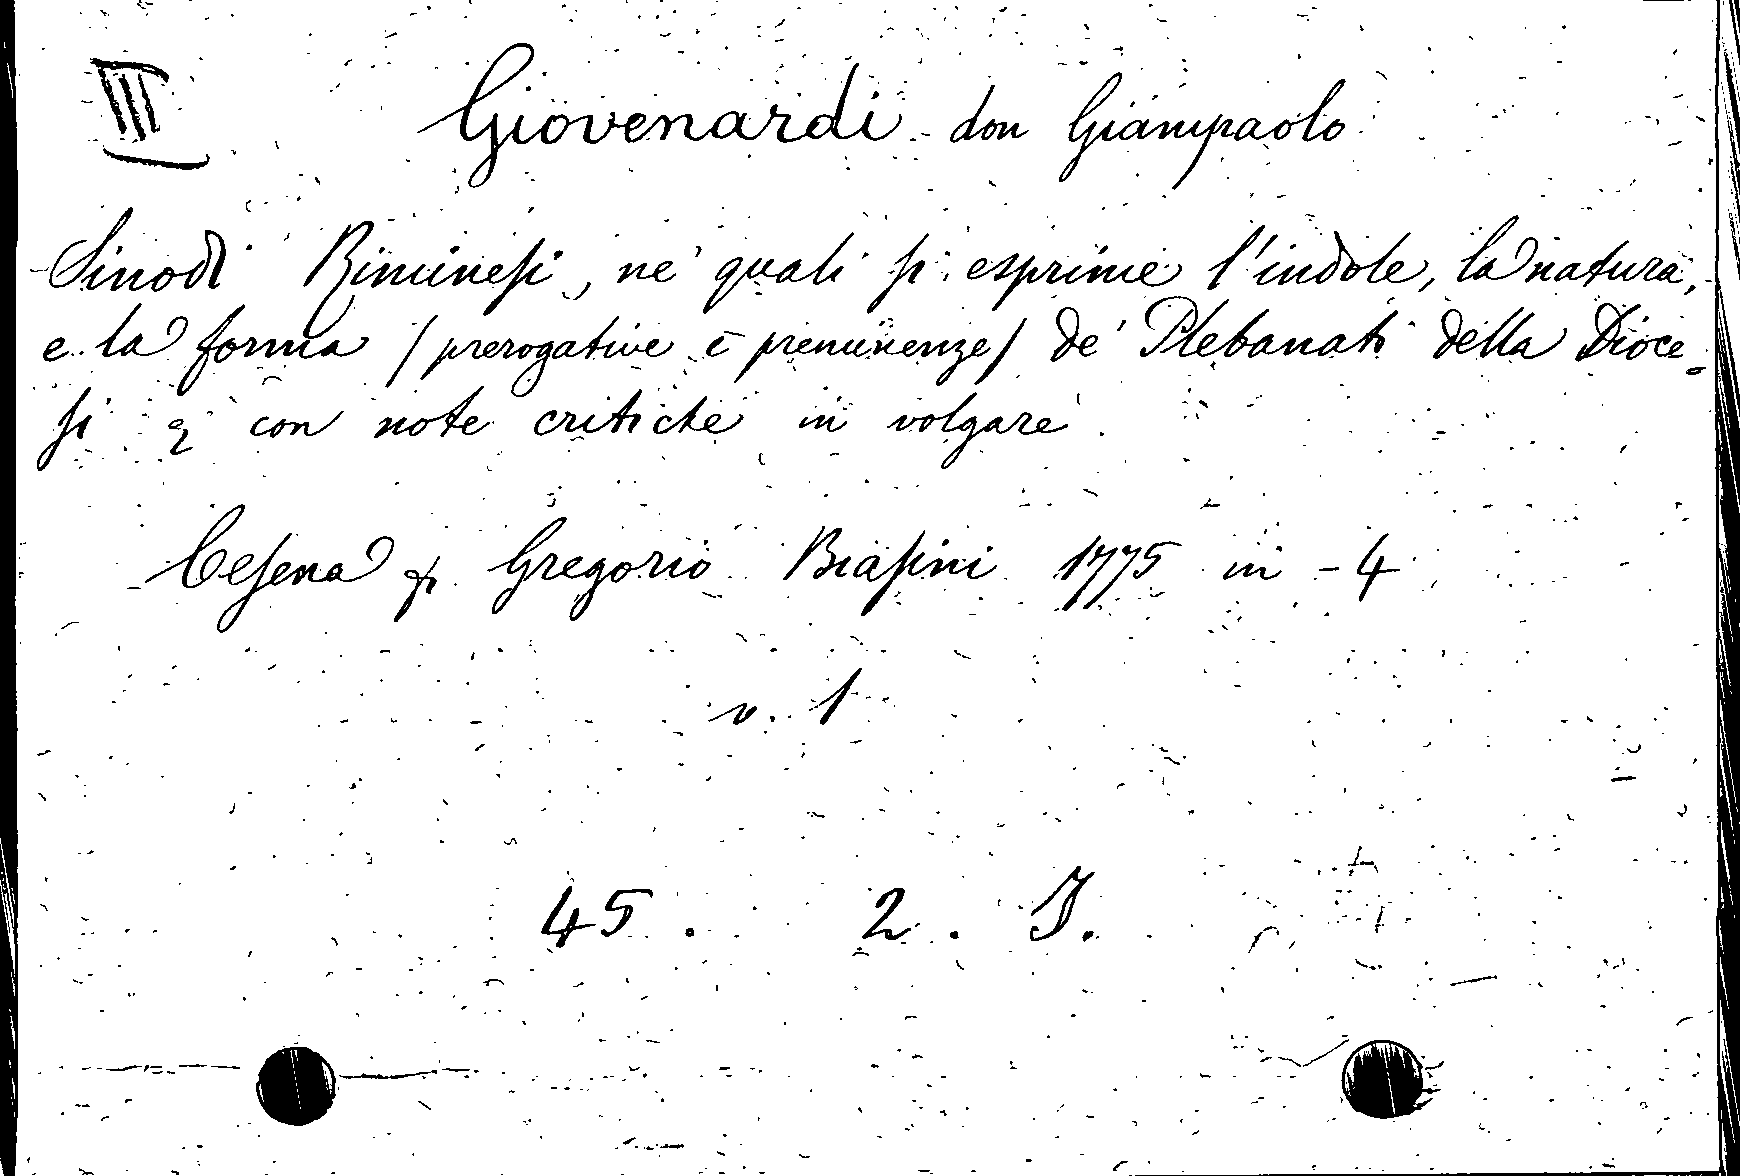 III
Giovenardi don Giampaolo
Sinodi Riminesi, ne' quali si esprime l'indole, la natura,
e la forma / prerogative e preminenze / de' Plebanati della Dioce=
si & con note critiche in volgare.
Cesena p. Gregorio Biasini 1775 in - 4
v. 1
45. 2. J.